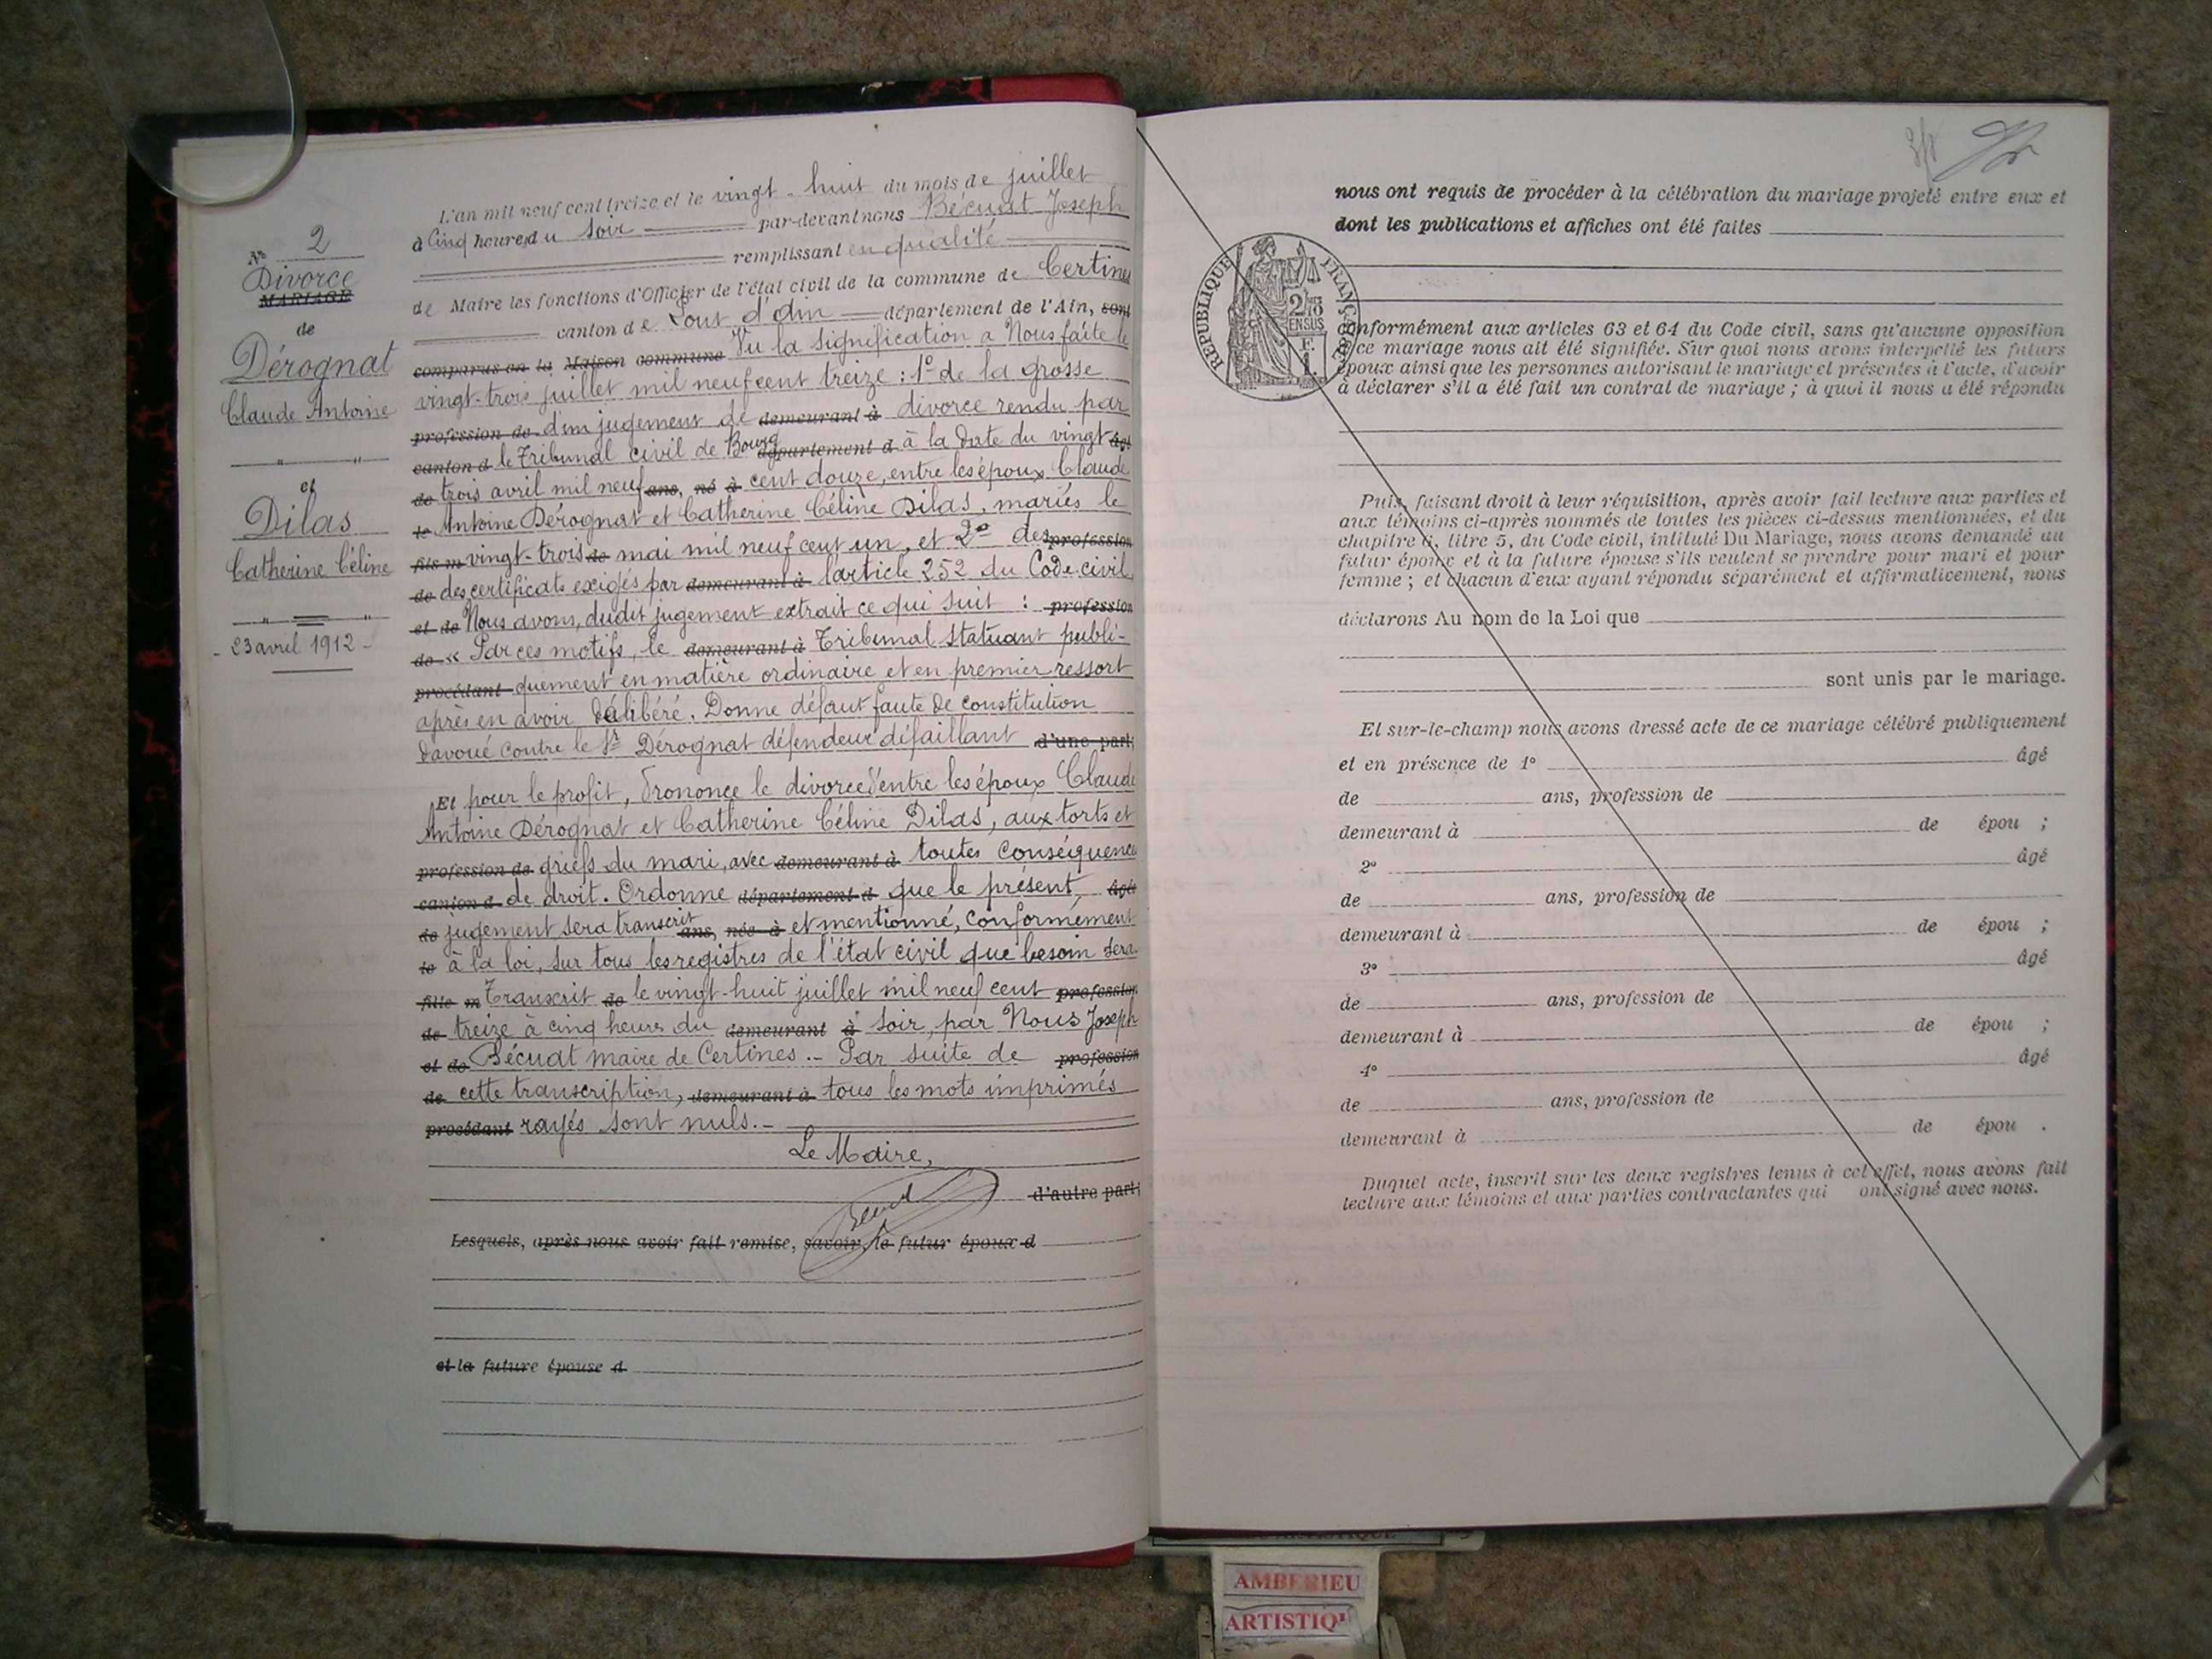 N° 2
Divorce
MARIAGE
de
Dérognat
Claude Antoine
et
Dilas
Catherine Céline
- 23 avril 1912 -
L'an mil neuf cent treize et le vingt-huit du mois de juillet
à Cinq heures du soir par-devant nous Bécuat Joseph
remplissant en qualité
de Maire les fonctions d'Officier de l'état civil de la commune de Certines
canton de Pont d'Ain département de l'Ain, sont
comparus en la Maison commune Vu la signification a Nous faite le
vingt-trois juillet mil neuf cent treize : 1° de la grosse
profession de d'un jugement de demeurant à divorce rendu par
canton d le Tribunal civil de Bourg département d à la date du vingt âgé
de trois avril mil neuf ans, né à cent douze, entre les époux Claude
le Antoine Dérognat et Catherine Céline Dilas, mariés le
fils m vingt-trois de mai mil neuf cent un, et 2° des profession
de des certificats exigés par demeurant à l'article 252 du Code civil
et de Nous avons, dudit jugement extrait ce qui suit : profession
de « Par ces motifs, le demeurant à Tribunal statuant publi-
procédant quement en matière ordinaire et en premier ressort
après en avoir délibéré. Donne défaut faute de constitution
d'avoué contre le Sr Dérognat défendeur défaillant d'une part;
Et pour le profit, Prononce le divorce d'entre les époux Claude
Antoine Dérognat et Catherine Céline Dilas, aux torts et
profession de griefs du mari, avec demeurant à toutes conséquences
canton d de droit. Ordonne département d que le présent, âgée
de jugement sera transcrit ans, née à et mentionné, conformément
le à la loi, sur tous les registres de l'état civil que besoin sera.
fille m Transcrit de le vingt-huit juillet mil neuf cent profession
de treize à cinq heures du demeurant à soir, par Nous Joseph
et de Bécuat maire de Certines. - Par suite de profession
de cette transcription, demeurant à tous les mots imprimés
procédant rayés sont nuls. -
Le Maire,
d'autre part;
Lesquels, après nous avoir fait remise, savoir, le futur époux d
et la future épouse d
nous ont requis de procéder à la célébration du mariage projeté entre eux et
dont les publications et affiches ont été faites
RÉPUBLIQUE FRANÇAISE
2/10es
EN SUS
F.
1.
conformément aux articles 63 et 64 du Code civil, sans qu'aucune opposition
ce mariage nous ait été signifiée. Sur quoi nous avons interpellé les futurs
époux ainsi que les personnes autorisant le mariage et présentes à l'acte, d'avoir
à déclarer s'il a été fait un contrat de mariage ; à quoi il nous a été répondu
Puis, faisant droit à leur réquisition, après avoir fait lecture aux parties et
aux témoins ci-après nommés de toutes les pièces ci-dessus mentionnées, et du
chapitre 6, titre 5, du Code civil, intitulé Du Mariage, nous avons demandé au
futur époux et à la future épouse s'ils veulent se prendre pour mari et pour
femme ; et chacun d'eux ayant répondu séparément et affirmativement, nous
déclarons Au nom de la Loi que
sont unis par le mariage.
Et sur-le-champ nous avons dressé acte de ce mariage célébré publiquement
et en présence de 1° âgé
de ans, profession de
demeurant à de épou ;
2° âgé
de ans, profession de
demeurant à de épou ;
3° âgé
de ans, profession de
demeurant à de épou ;
4° âgé
de ans, profession de
demeurant à de épou .
Duquel acte, inscrit sur les deux registres tenus à cet effet, nous avons fait
lecture aux témoins et aux parties contractantes qui ont signé avec nous.
AMBERIEU
ARTISTIQU